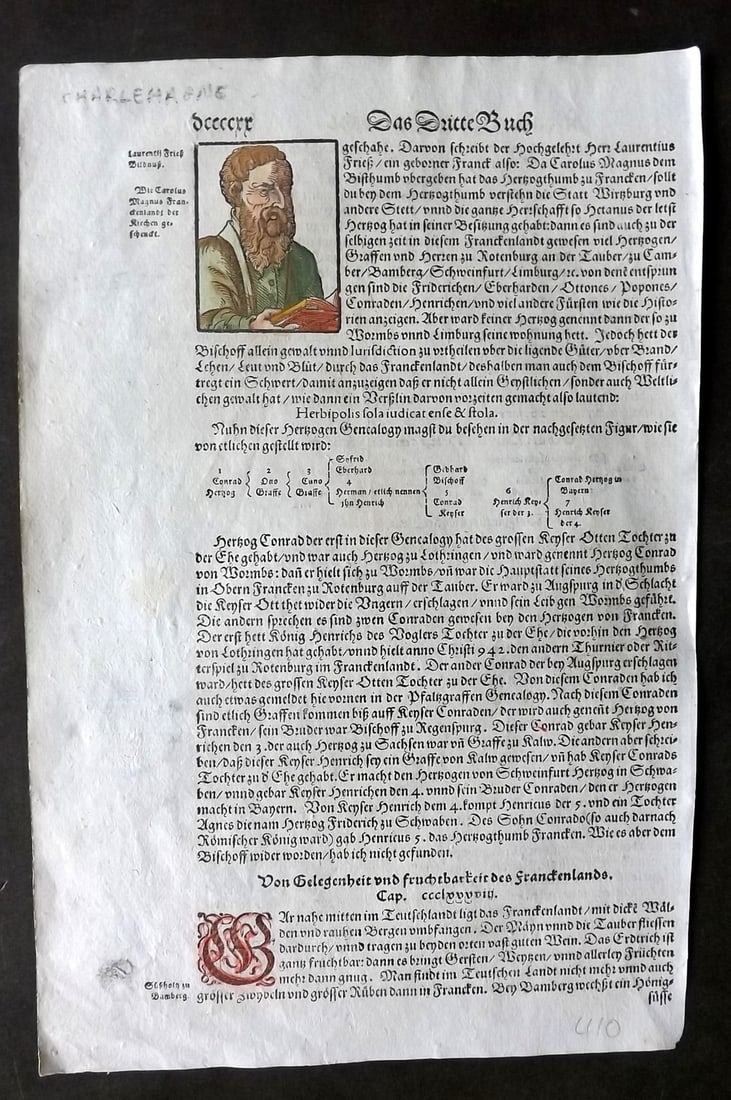 CHARLEMAGNE
dcccccxx
Das Dritte Buch
Laurentij Frieß
Bildnuß.
Wie Carolus
Magnus Fran-
ckenlandt der
Kirchen ge-
schenckt.
geschahe. Darvon schreibt der Hochgelehrt Herr Laurentius
Frieß/ein geborner Franck also: Da Carolus Magnus dem
Bisthumb vbergeben hat das Hertzogthumb zu Francken/sollt
du bey dem Hertzogthumb verstehn die Statt Wirtzburg vnd
andere Stett/vnnd die gantze Herrschafft so Hetanus der letst
Hertzog hat in seiner Besitzung gehabt: dann es sind auch zu der
selbigen zeit in diesem Franckenlandt gewesen viel Hertzogen/
Graffen vnd Herren zu Rotenburg an der Tauber/zu Cam-
ber/Bamberg/Schweinfurt/Limburg/rc. von denē entsprun
gen sind die Friderichen/Eberharden/Ottones/Popones/
Conraden/Henrichen/vnd viel andere Fürsten wie die Histo-
rien anzeigen. Aber ward keiner Hertzog genennt dann der so zu
Wormbs vnnd Limburg seine wohnung hett. Jedoch hett der
Bischoff allein gewalt vnnd Iurisdiction zu vrtheilen vber die ligende Güter/vber Brand/
Lehen/Leut vnd Blüt/durch das Franckenlandt/deshalben man auch dem Bischoff für-
tregt ein Schwert/damit anzuzeigen daß er nicht allein Geystlichen/sonder auch Weltli-
chen gewalt hat/wie dann ein Verßlin darvon vorzeiten gemacht also lautend:
Herbipolis sola iudicat ense & stola.
Nuhn dieser Hertzogen Genealogy magst du besehen in der nachgesetzten Figur/wie sie
von etlichen gestellt wird:
1
Conrad
Hertzog
2
Ono
Graffe
3
Cuno
Graffe
Syfrid
Eberhard
4
Herman/etlich nennen
jhn Henrich
Gebhard
Bischoff
5
Conrad
Keyser
6
Henrich Key-
ser der 3.
Conrad Hertzog in
Bayern
7
Henrich Keyser
der 4.
Hertzog Conrad der erst in dieser Genealogy hat des grossen Keyser Otten Tochter zu
der Ehe gehabt/vnd war auch Hertzog zu Lothringen/vnd ward genennt Hertzog Conrad
von Wormbs: dañ er hielt sich zu Wormbs/vñ war die Hauptstatt seines Hertzogthumbs
in Obern Francken zu Rotenburg auff der Tauber. Er ward zu Augspurg in d' Schlacht
die Keyser Ott thet wider die Vngern/erschlagen/vnnd sein Leib gen Wormbs geführt.
Die andern sprechen es sind zwen Conraden gewesen bey den Hertzogen von Francken.
Der erst hett König Henrichs des Voglers Tochter zu der Ehe/die vorhin den Hertzog
von Lothringen hat gehabt/vnnd hielt anno Christi 942. den andern Thurnier oder Rit-
terspiel zu Rotenburg im Franckenlandt. Der ander Conrad der bey Augspurg erschlagen
ward/hett des grossen Keyser Otten Tochter zu der Ehe. Von diesem Conraden hab ich
auch etwas gemeldet hie vornen in der Pfaltzgraffen Genealogy. Nach diesem Conraden
sind etlich Graffen kommen biß auff Keyser Conraden/der wird auch genent Hertzog von
Francken/sein Bruder war Bischoff zu Regenspurg. Dieser Conrad gebar Keyser Hen-
richen den 3. der auch Hertzog zu Sachsen war vñ Graffe zu Kalw. Die andern aber schrei-
ben/daß dieser Keyser Henrich sey ein Graffe von Kalw gewesen/vñ hab Keyser Conrads
Tochter zu d' Ehe gehabt. Er macht den Hertzogen von Schweinfurt Hertzog in Schwa-
ben/vnnd gebar Keyser Henrichen den 4. vnnd sein Bruder Conraden/den er Hertzogen
macht in Bayern. Von Keyser Henrich dem 4. kompt Henricus der 5. vnd ein Tochter
Agnes die nam Hertzog Friderich zu Schwaben. Des Sohn Conrado (so auch darnach
Römischer König ward) gab Henricus 5. das Hertzogthumb Francken. Wie es aber dem
Bischoff wider worden/hab ich nicht gefunden.
Von Gelegenheit vnd fruchtbarkeit des Franckenlands.
Cap. ccclxxxviij.
Ar nahe mitten im Teutschlandt ligt das Franckenlandt/mit dickē Wäl-
den vnd rauhen Bergen vmbfangen. Der Mäyn vnnd die Tauber fliessen
dardurch/vnnd tragen zu beyden orten vast guten Wein. Das Erdtrich ist
gantz fruchtbar: dann es bringt Gersten/Weytzen/vnnd allerley Früchten
mehr dann gnug. Man findt im Teutschen Landt nicht mehr vnnd auch
grösser Zwybeln vnd grösser Rüben dann in Francken. Bey Bamberg wechßt ein Hönig-
süsse
Süßholtz zu
Bamberg.
410